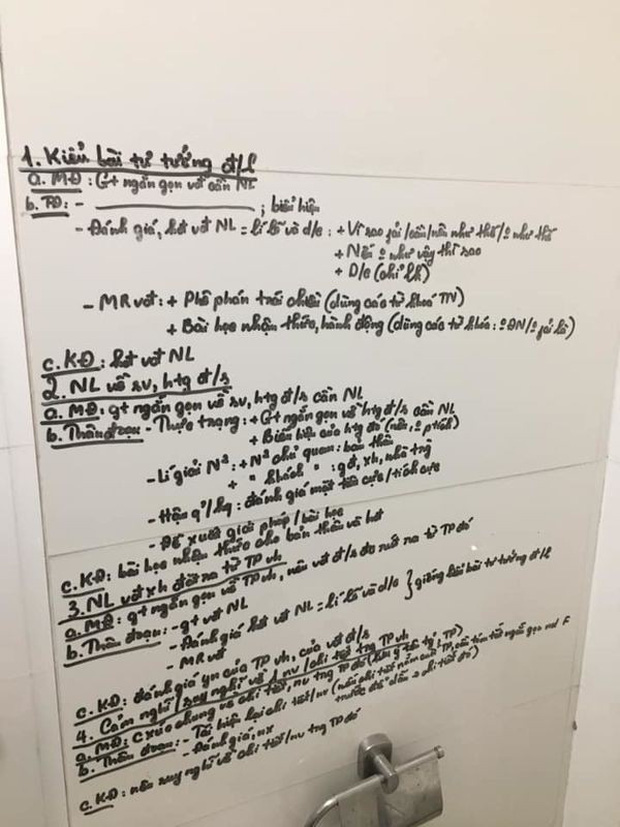 1. Kiểu bài tư tưởng đ/l
a. MĐ: Gt ngắn gọn vđ cần NL
b. TĐ: - ; biểu hiện
- Đánh giá, bot vđ NL = lí lẽ và d/c : + Vì sao fải /cần/nên như thế/ º như thế
+ Nếu º như vậy thì sao
+ D/c (chỉ lk)
- MR vđ: + Phê phán trái chiều (dùng các từ khoá TN)
+ Bài học nhận thức, hành động (dùng các từ khóa: º ĐN/º fải là)
c. KĐ: bot vđ NL
2. NL về sv, htg đ/s
a. MĐ: gt ngắn gọn về sv, htg đ/s cần NL
b. Thân đoạn - Thực trạng: + Gt ngắn gọn về htg đ/s cần NL
+ Biểu hiện của htg đó (nêu, º ptích)
- Lí giải Nº: + Nº chủ quan: bản thân
+ " khách " : gđ, xh, nhà trg
- Hậu q'/kq: đánh giá mặt tiêu cực/tích cực
- Đề xuất giải pháp/bài học
c. KĐ: bài học nhận thức cho bản thân và bot
3. NL vđ xh đặt ra từ TP vh
a. MĐ: gt ngắn gọn về TP vh, nêu vđ đ/s đc rút ra từ TP đó
b. Thân đoạn: - gt vđ NL
- Đánh giá bot vđ NL = lí lẽ và d/c } giống kiểu bài tư tưởng đ/l
- MR vđ
c. KĐ: đánh giá ýn của TP vh, của vđ đ/s
4. Cảm nghĩ/suy nghĩ về 1 nv/chi tiết trg TP vh
a. MĐ: cxúc chung về chi tiết, nv trg TP đó
b. Thân đoạn: - Tái hiện lại chi tiết/nv
- Đánh giá, nx
c. KĐ: nêu suy nghĩ về chi tiết/nv trg TP đó